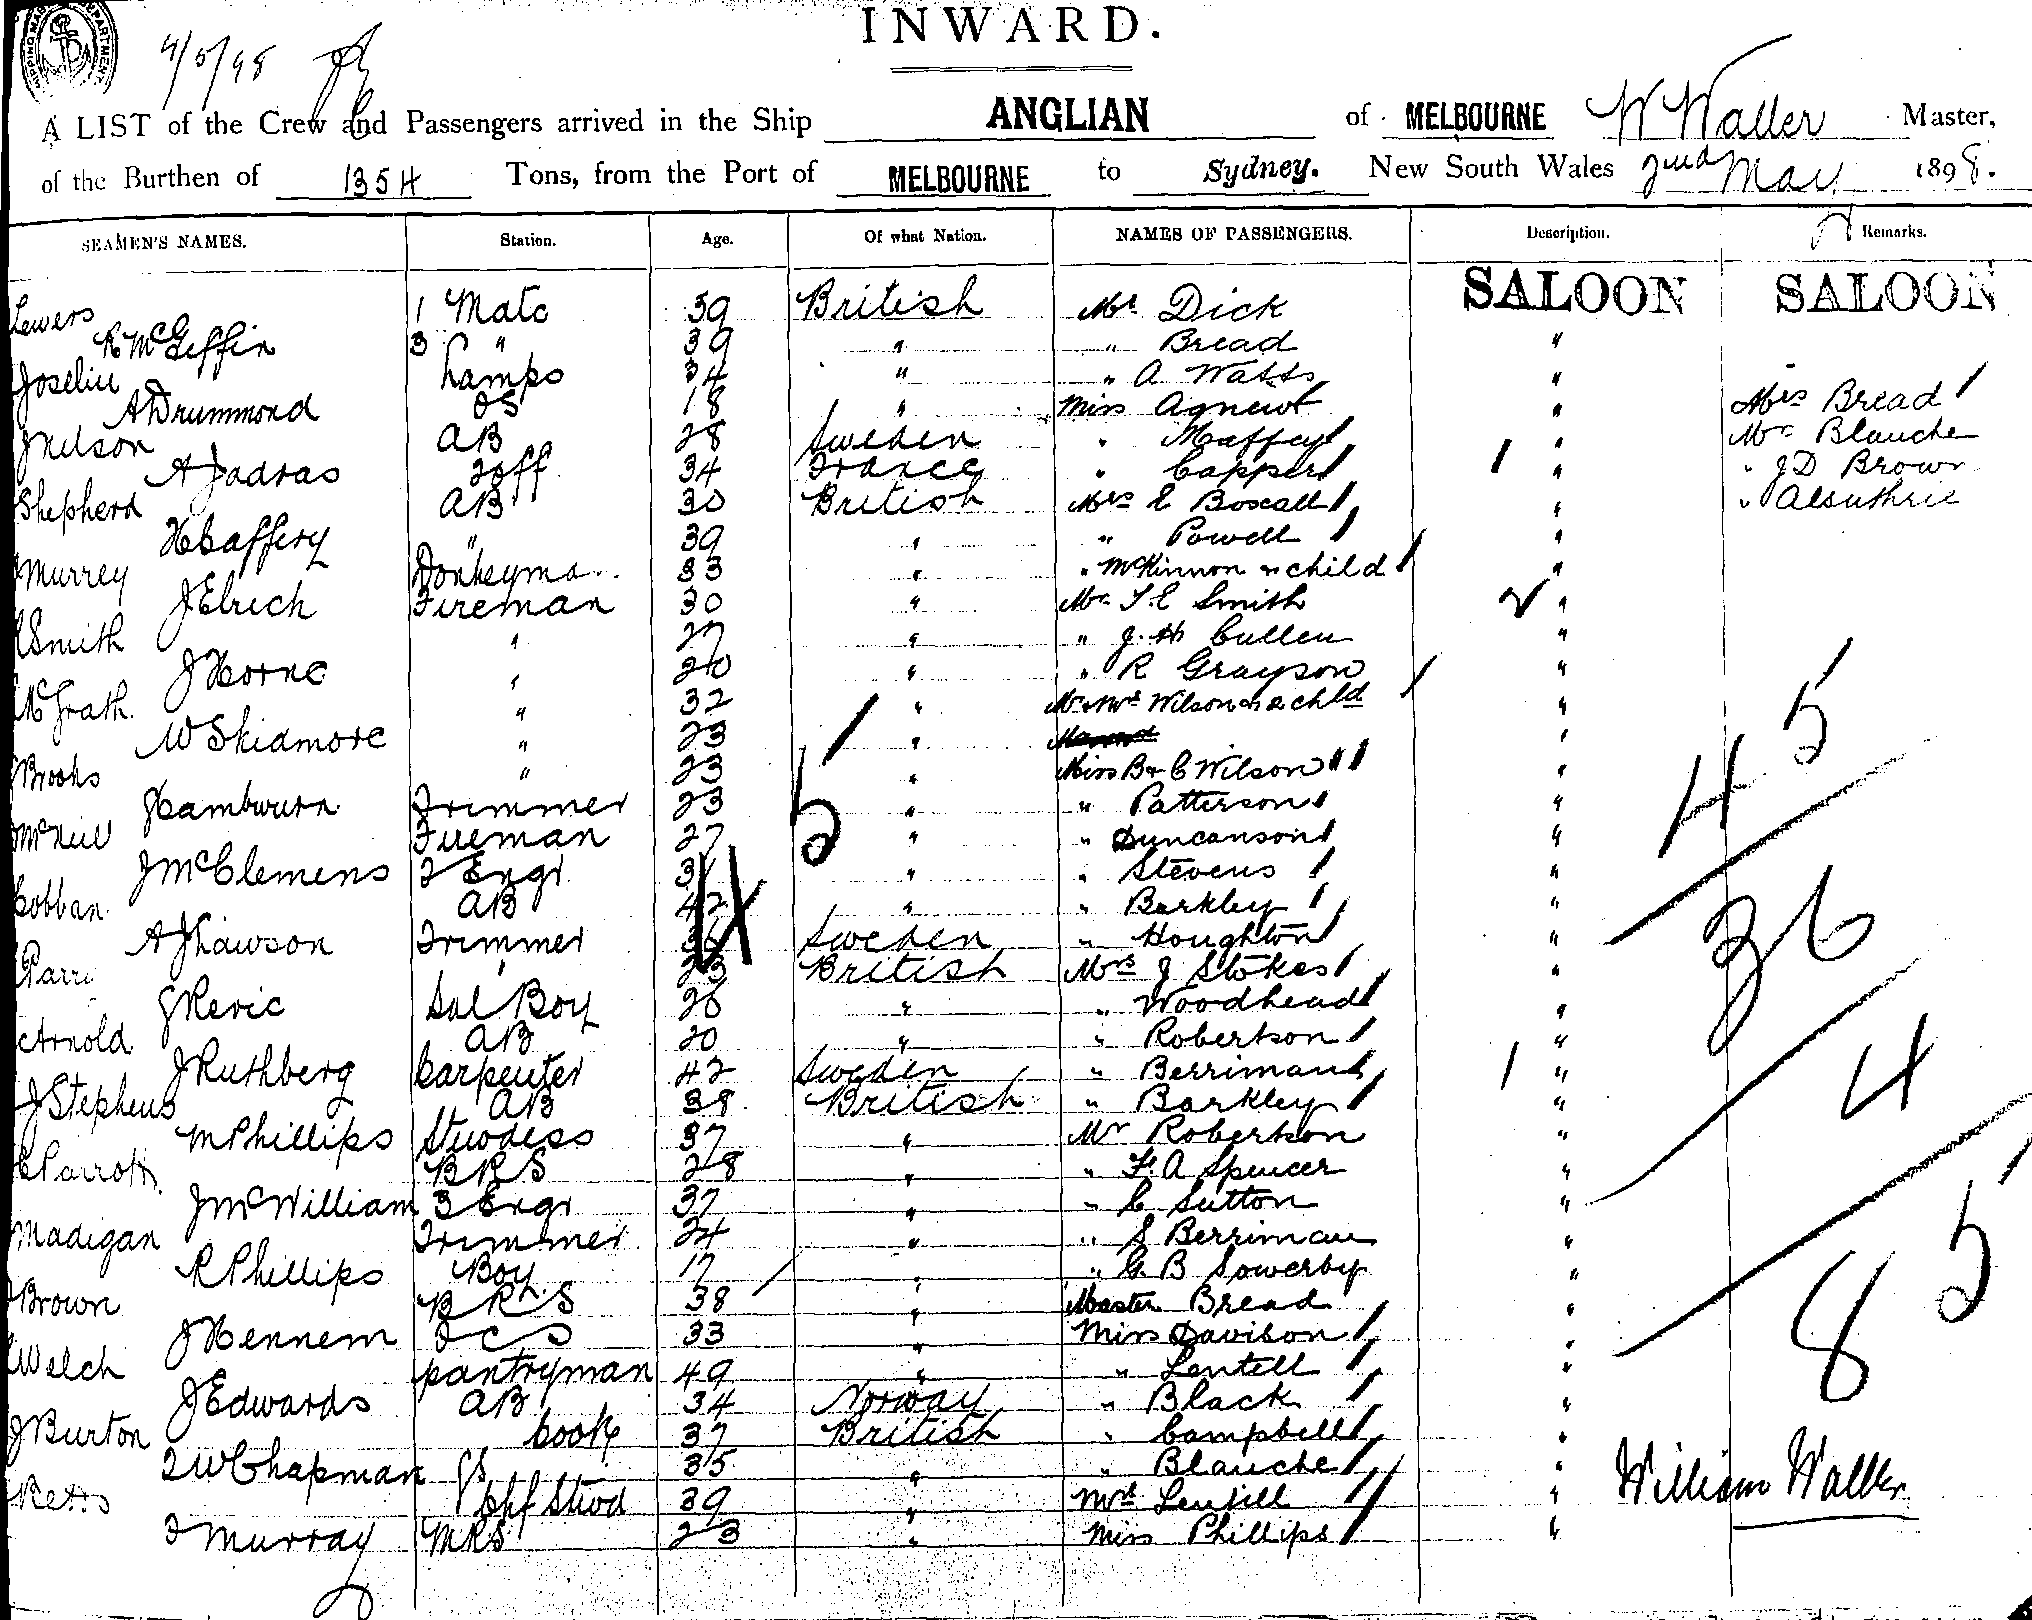 INWARD.
4/5/98
A LIST of the Crew and Passengers arrived in the Ship ANGLIAN of MELBOURNE W Waller Master,
of the Burthen of 1354 Tons, from the Port of MELBOURNE to Sydney. New South Wales 2nd May 1898.
SEAMEN'S NAMES. Station. Age. Of what Nation. NAMES OF PASSENGERS. Description. Remarks.
Lewers 1 Mate 59 British Mr Dick SALOON SALOON
R McGiffin 3 " 39 " " Bread "
Joselin Lamps 34 " " A Watts "
A Drummond OS 18 " Miss Agnew " Mrs Bread
J Nelson AB 28 Sweden " Maffey " Mr Blanche
A Jadras 34 France " Capper 1 " " J D Brown
Shepherd AB 30 British Mrs E Boxall " "
H Caffery " 39 " " Powell "
Murrey Donkeyma 33 " " McKinnon & child "
J Elrich Fireman 30 " Mr T. E Smith 2 "
Smith " 27 " " J. H Cullen "
J Horne " 20 " " R Grayson "
McGrath " 32 " Mr & Mrs Wilson & 2 chld "
W Skidmore " 23 " "
Brooks " 23 " Miss B & C Wilson "
Trimmer 23 " " Patterson "
McNeil Fireman 27 " " Duncanson "
J McClemens 2 Engr " " Stevens "
Cobban AB 42 " " Barkley "
A J Lawson Trimmer 36 Sweden " Houghton "
Parr " 23 British Mrs J Stokes "
J Revie Sal Boy 26 " " Woodhead "
Arnold AB 20 " " Robertson "
J Ruthberg Carpenter 42 Sweden " Berriman 1 "
J Stephens AB 38 British " Barkley "
M Phillips Stewdess 37 " Mr Robertson "
Parrott BRS 28 " " F. A Spencer "
J McWilliam 3 Engr 37 " " C Sutton "
Madigan Trimmer 24 " " S Berriman "
R Phillips Boy 17 " " G. B Sowerby "
Brown BRS 38 " Master Bread "
J Hennem 2CS 33 " Miss Davison "
Welch pantryman 49 " " Lentell "
J Edwards AB 34 Norway " Black "
J Burton Cook 37 British " Campbell "
W Chapman FS 35 " " Blanche "
Betts Chf Stwd 39 " Mrs Lentell "
Murray MRS 23 " Miss Phillips "
45
36
4
85
William Waller